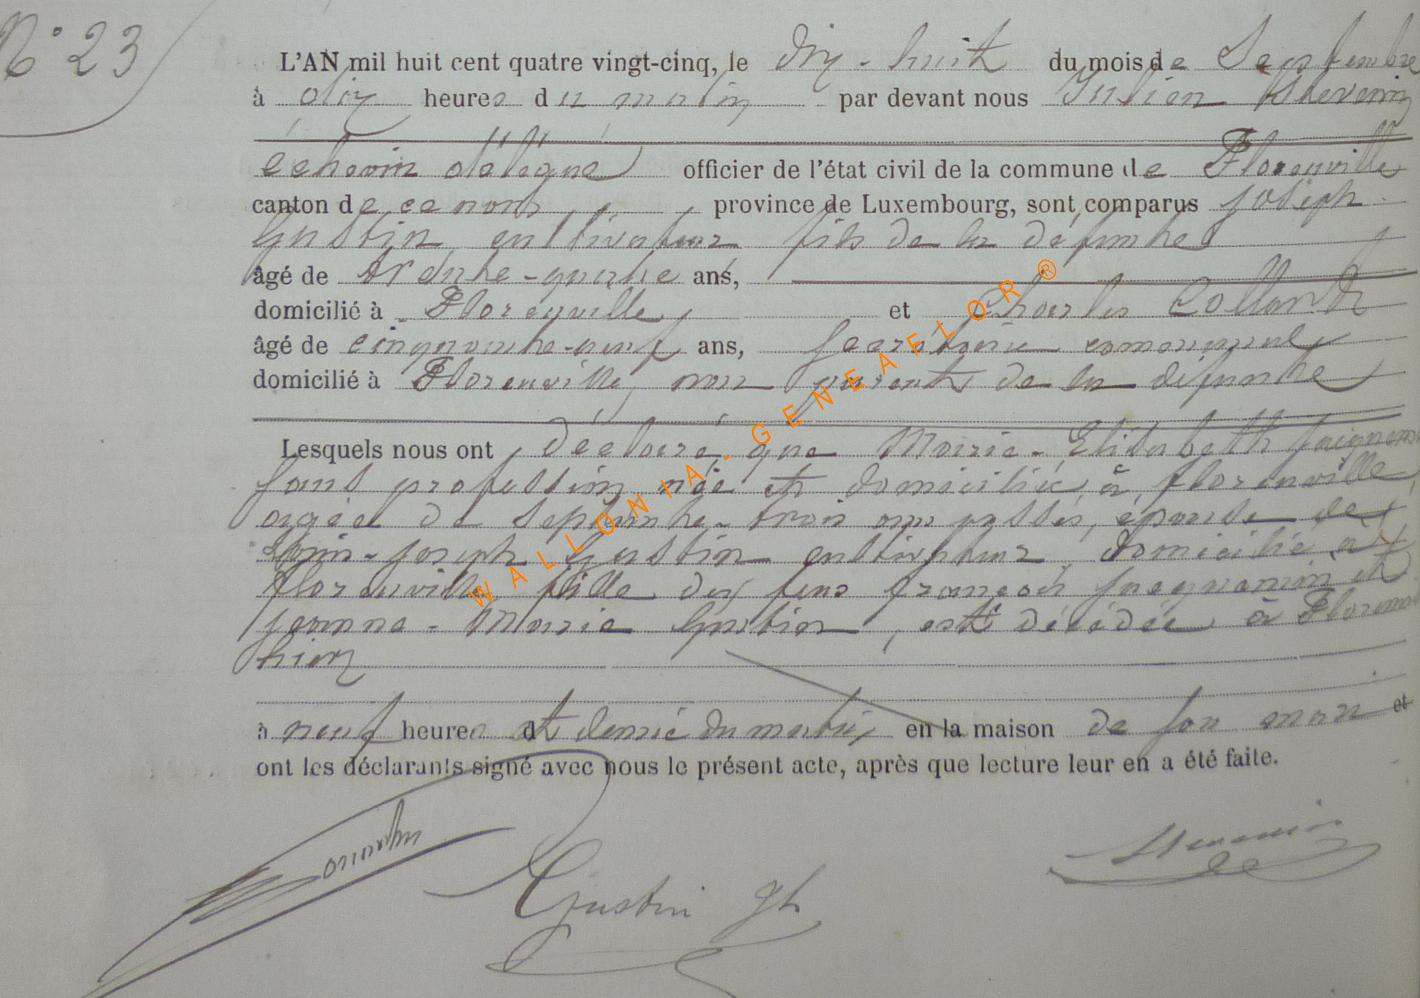 N° 23
L'AN mil huit cent quatre vingt-cinq, le dix-huit du mois de Septembre
à dix heures du matin par devant nous Julien Thevenin
échevin délégué officier de l'état civil de la commune de Florenville
canton de ce nom, province de Luxembourg, sont comparus Joseph
Gustin, cultivateur fils de la défunte
âgé de trente-quatre ans,
domicilié à Florenville, et Charles Collard
âgé de cinquante-neuf ans, Secrétaire communal
domicilié à Florenville, non parent de la défunte
Lesquels nous ont déclaré que Marie-Elisabeth
sans profession née et domiciliée à Florenville
agée de septante-trois ans passés, épouse de
Jean-Joseph Gustin cultivateur domicilié à
Florenville fille des feus François et
Jeanne-Marie Gustin, est décédée à
hier
à neuf heures et demie du matin en la maison de son mari et
ont les déclarants signé avec nous le présent acte, après que lecture leur en a été faite.
Gustin Jh
WALLONIA - GENEAFLOR ®